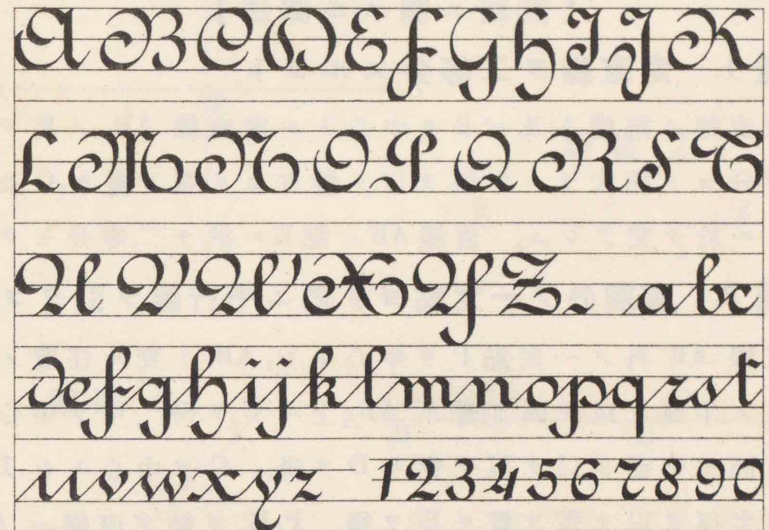 A B C D E F G H I J K
L M N O P Q R S T
U V W X Y Z. a b c
d e f g h i j k l m n o p q r s t
u v w x y z 1 2 3 4 5 6 7 8 9 0